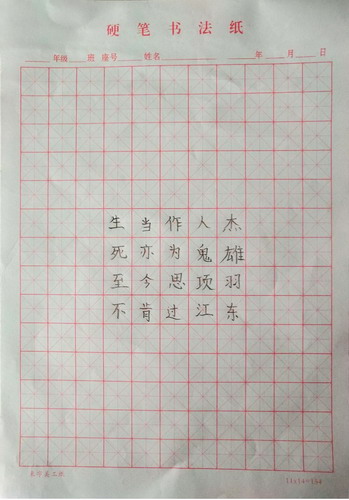 硬笔书法纸
年级 班 座号 姓名 年 月 日
生当作人杰
死亦为鬼雄
至今思项羽
不肯过江东